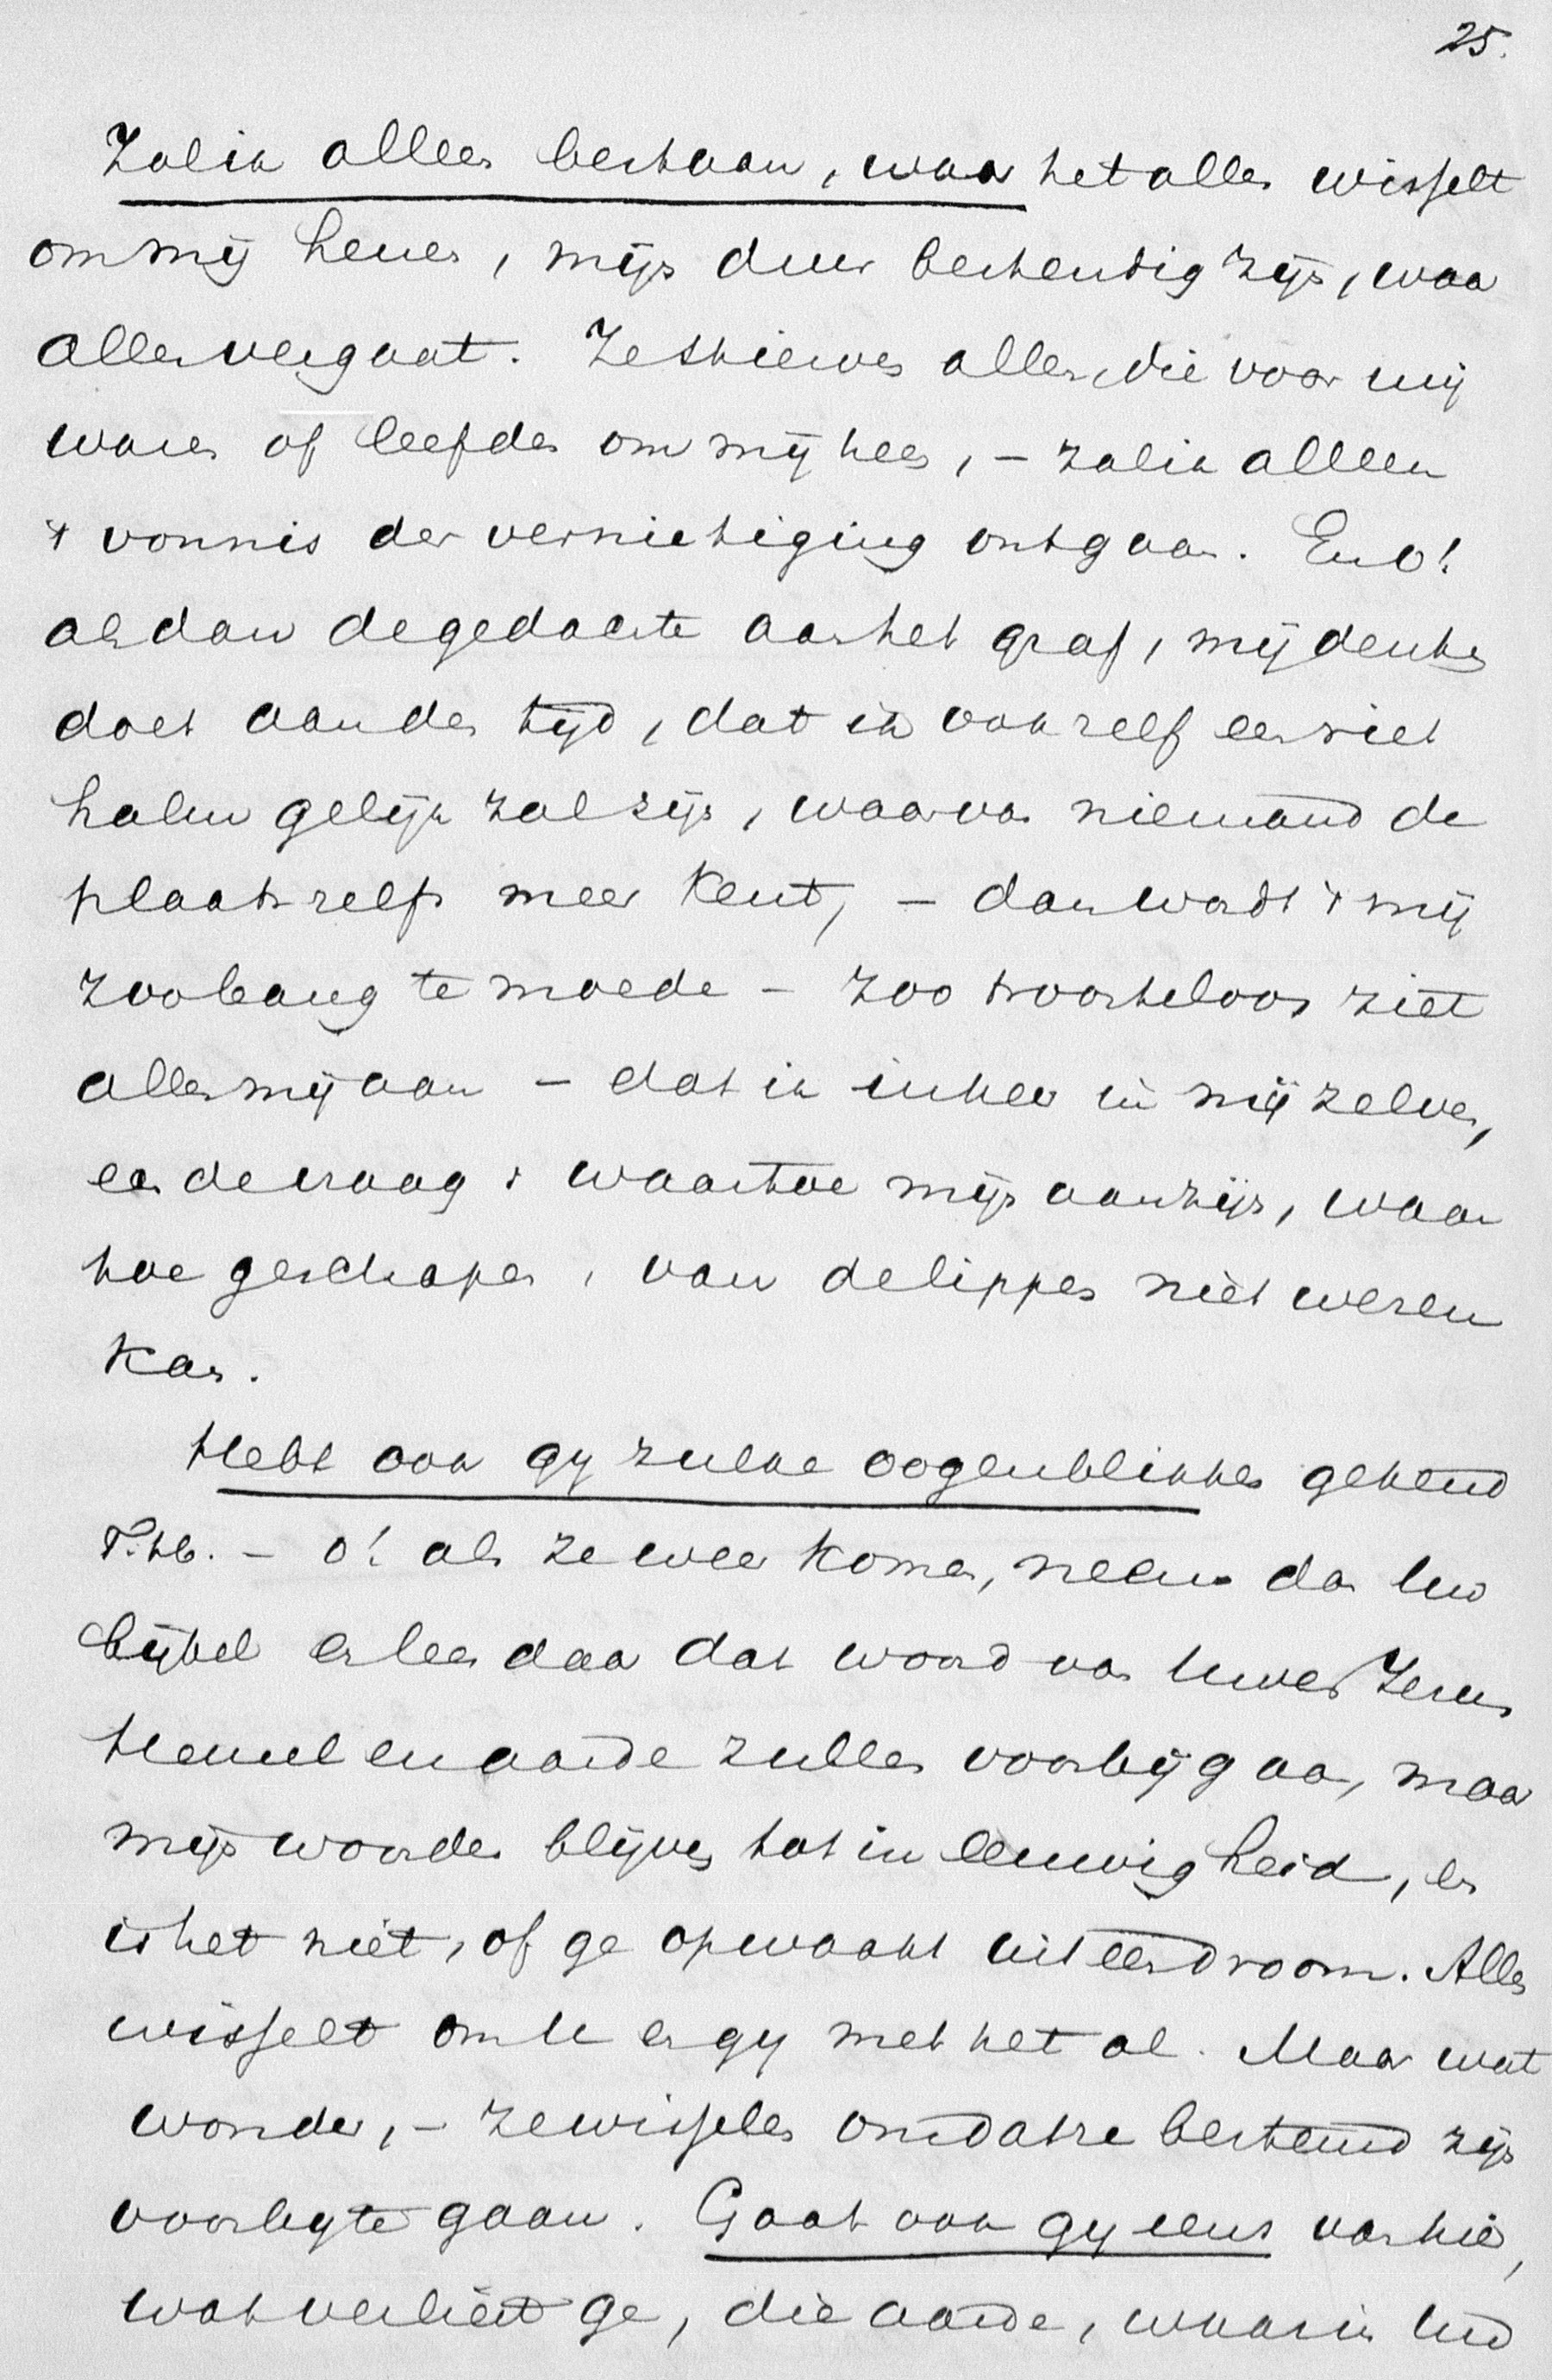 25.
Zal ik alleen bestaan, waar het alles wisselt
om mij henen, mijn duur bestendig zijn, waar
alles vergaat. Ze stierven allen, die voor mij
waren of leefden om mij heen, – zal ik alleen
't vonnis der vernietiging ontgaan. En o!
als dan de gedachte aan het graf, mij denken
doet aan den tijd, dat ik ook zelf een riet
halm gelijk zal zijn, waarvan niemand de
plaats zelfs meer kent, – dan wordt 't mij
zoo bang te moede – zoo troosteloos ziet
alles mij aan – dat ik inkeer in mij zelven,
en de vraag: waartoe mijn aanzijn, waar
toe geschapen, van de lippen niet weren
kan.
Hebt ook gy zulke oogenblikken gekend
T. H. – o! als ze weer komen, neem dan Uw
bijbel en lees daar dat woord van Uwen Jezus
Hemel en aarde zullen voorbijgaan, maar
mijn woorden blijven tot in eeuwigheid, en
is het niet, of ge opwaakt uit een droom. Alles
wisselt om U en gy met het al. Maar wat
wonder, – ze wisselen omdat ze bestemd zijn
voorby te gaan. Gaat ook gy eens van hier,
wat verliest ge, die aarde, waarin Uw